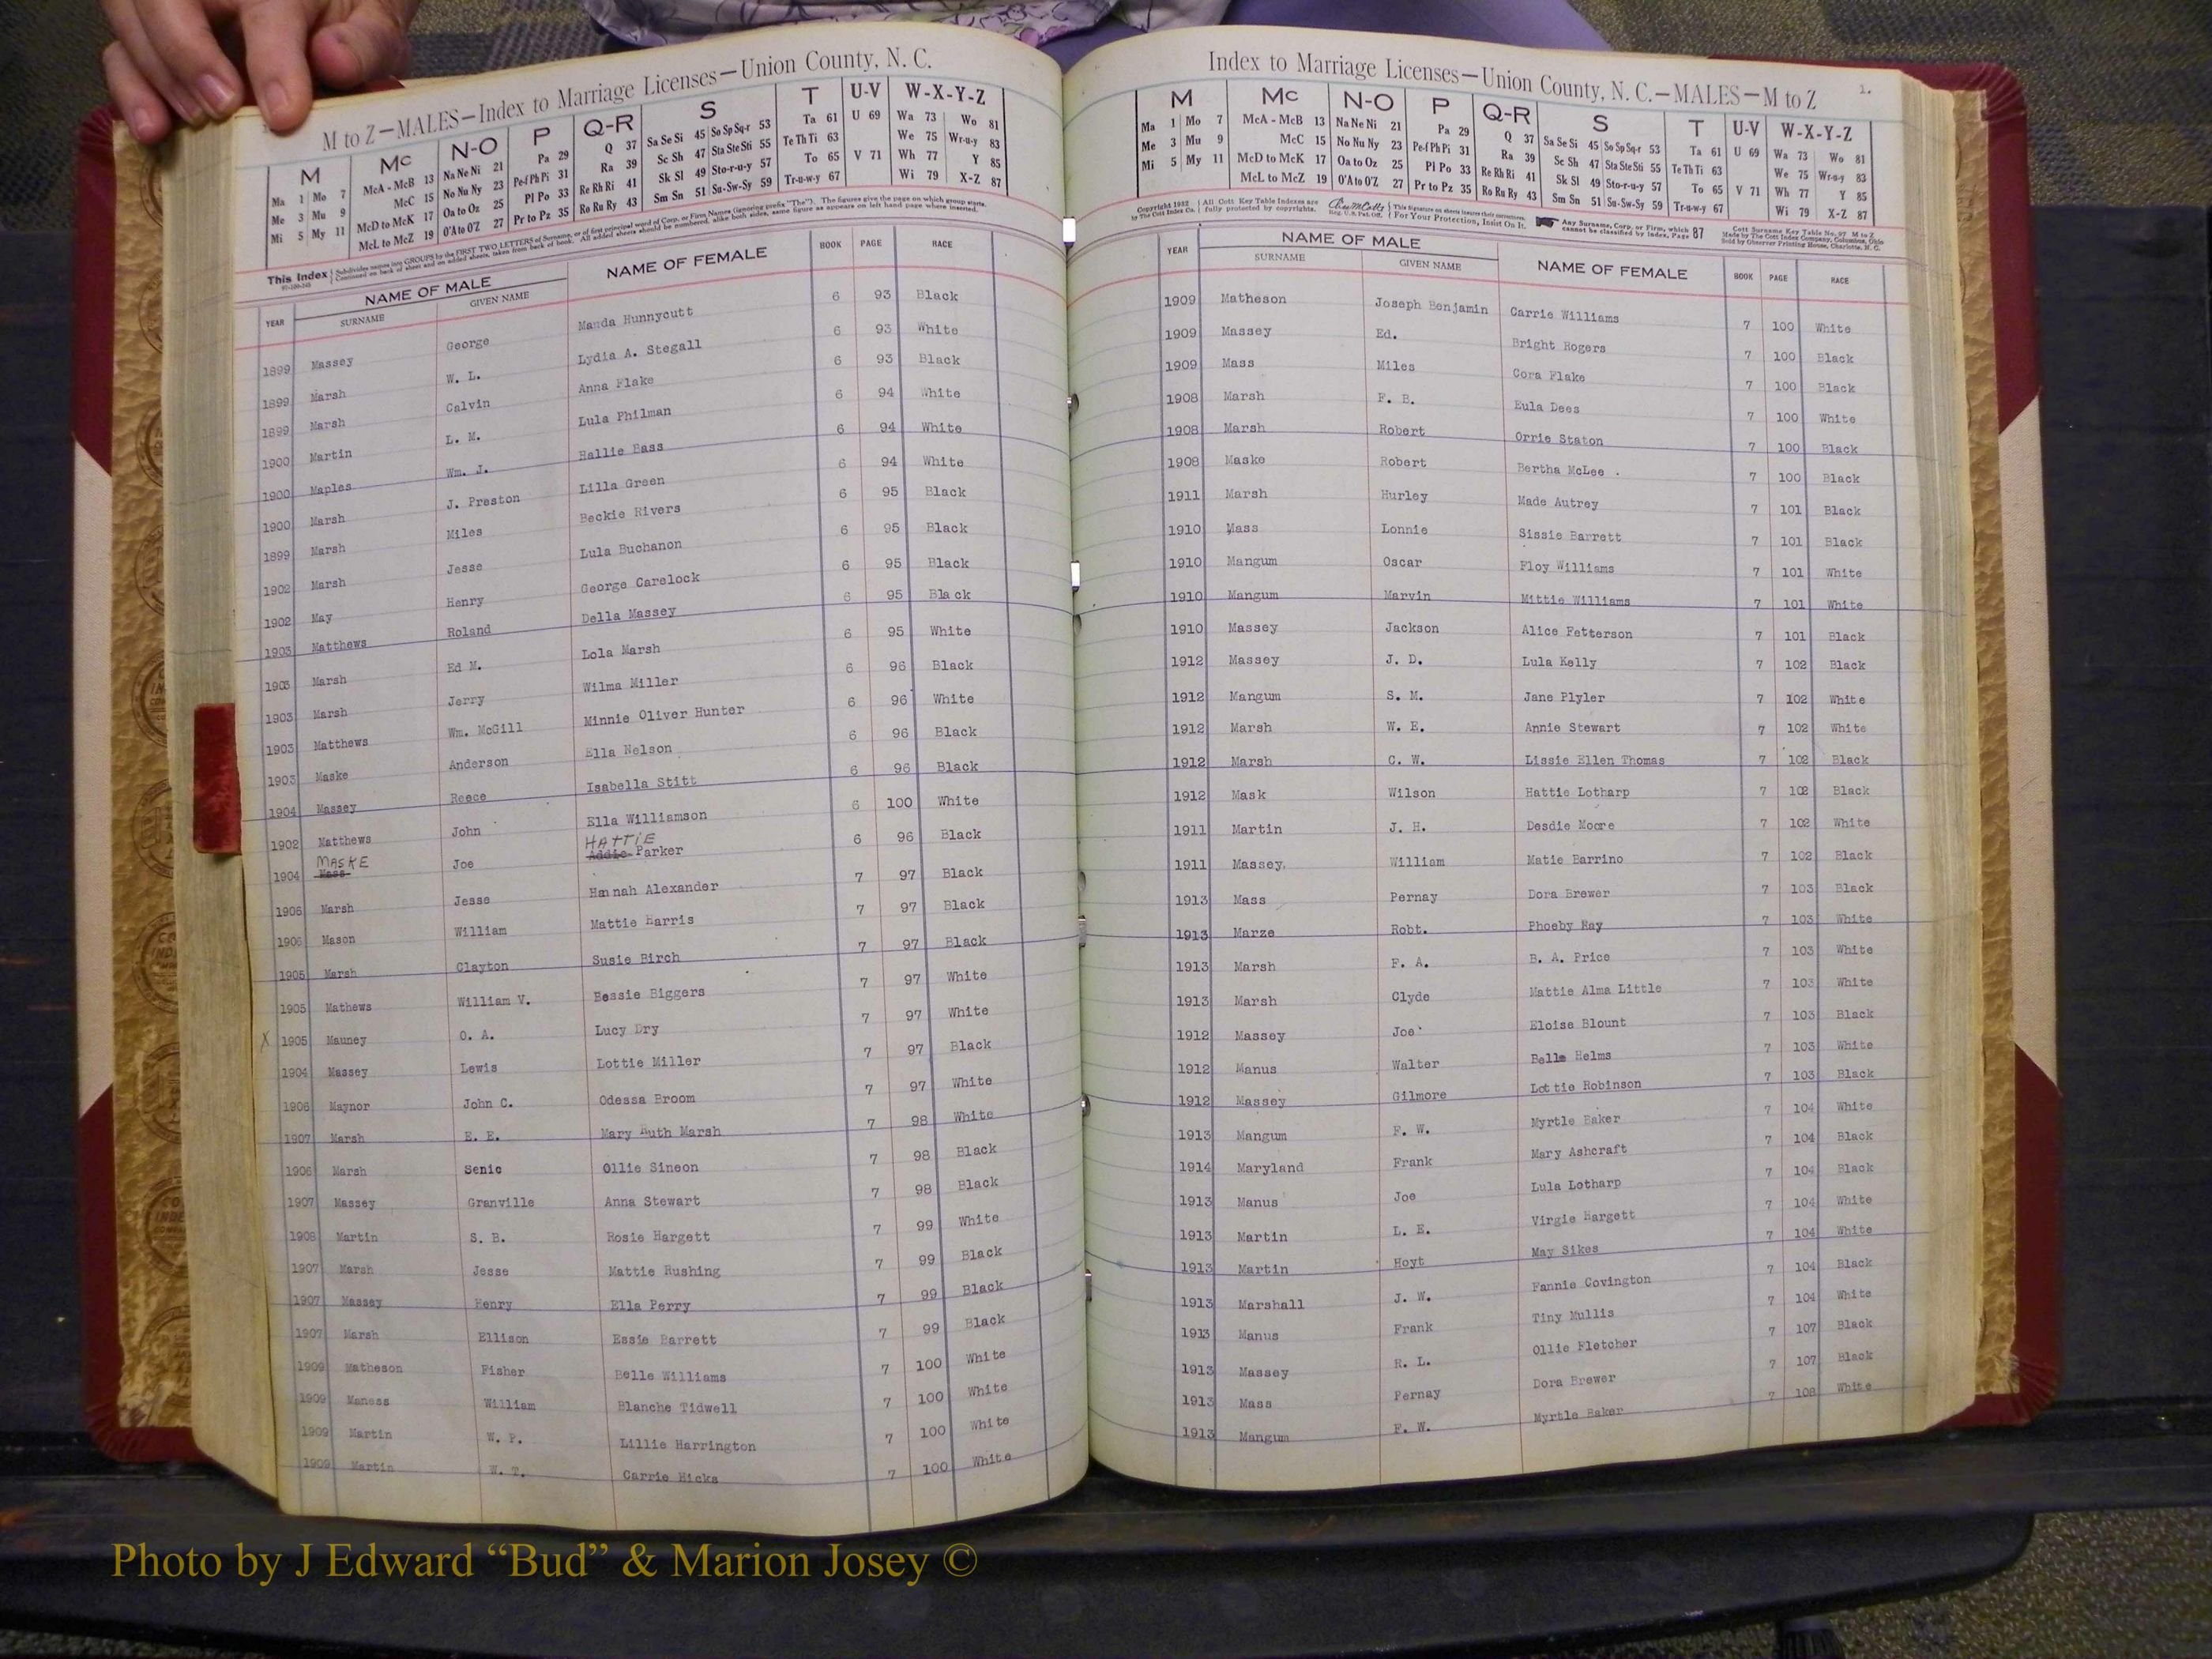 M to Z—MALES—Index to Marriage Licenses—Union County, N. C.
M Mc N-O P Q-R S T U-V W-X-Y-Z
Ma 1 Mo 7 McA - McB 13 Na Ne Ni 21 Pa 29 Q 37 Sa Se Si 45 So Sp Sq-r 53 Ta 61 U 69 Wa 73 Wo 81
Me 3 Mu 9 McC 15 No Nu Ny 23 Pe-f Ph Pi 31 Ra 39 Sc Sh 47 Sta Ste Sti 55 Te Th Ti 63 We 75 Wr-u-y 83
Mi 5 My 11 McD to McK 17 Oa to Oz 25 Pl Po 33 Re Rh Ri 41 Sk Sl 49 Sto-r-u-y 57 To 65 V 71 Wh 77 Y 85
McL to McZ 19 O'A to O'Z 27 Pr to Pz 35 Ro Ru Ry 43 Sm Sn 51 Su-Sw-Sy 59 Tr-u-w-y 67 Wi 79 X-Z 87
This Index Subdivides names into GROUPS by the FIRST TWO LETTERS of Surname, or of first principal word of Corp. or Firm Names (ignoring prefix "The"). The figures give the page on which group starts.
Continued on back of sheet and on added sheets, taken from back of book. All added sheets should be numbered, alike both sides, same figure as appears on left hand page where inserted.
YEAR NAME OF MALE NAME OF FEMALE BOOK PAGE RACE
SURNAME GIVEN NAME
1899 Massey George Manda Hunnycutt 6 93 Black
1899 Marsh W. L. Lydia A. Stegall 6 93 White
1899 Marsh Calvin Anna Flake 6 93 Black
1900 Martin L. M. Lula Philman 6 94 White
1900 Maples Wm. J. Hallie Bass 6 94 White
1900 Marsh J. Preston Lilla Green 6 94 White
1899 Marsh Miles Beckie Rivers 6 95 Black
1902 Marsh Jesse Lula Buchanon 6 95 Black
1902 May Henry George Carelock 6 95 Black
1903 Matthews Roland Della Massey 6 95 Black
1903 Marsh Ed M. Lola Marsh 6 95 White
1903 Marsh Jerry Wilma Miller 6 96 Black
1903 Matthews Wm. McGill Minnie Oliver Hunter 6 96 White
1903 Maske Anderson Ella Nelson 6 96 Black
1904 Massey Reece Isabella Stitt 6 96 Black
1902 Matthews John Ella Williamson 6 100 White
MASKE HATTIE
1904 Mass Joe Addie Parker 6 96 Black
1906 Marsh Jesse Hannah Alexander 7 97 Black
1906 Mason William Mattie Harris 7 97 Black
1905 Marsh Clayton Susie Birch 7 97 Black
1905 Mathews William V. Bessie Biggers 7 97 White
X 1905 Mauney O. A. Lucy Dry 7 97 White
1904 Massey Lewis Lottie Miller 7 97 Black
1906 Maynor John C. Odessa Broom 7 97 White
1907 Marsh E. E. Mary Ruth Marsh 7 98 White
1906 Marsh Senic Ollie Sineon 7 98 Black
1907 Massey Granville Anna Stewart 7 98 Black
1908 Martin S. B. Rosie Hargett 7 99 White
1907 Marsh Jesse Mattie Rushing 7 99 Black
1907 Massey Henry Ella Perry 7 99 Black
1907 Marsh Ellison Essie Barrett 7 99 Black
1909 Matheson Fisher Belle Williams 7 100 White
1909 Maness William Blanche Tidwell 7 100 White
1909 Martin W. P. Lillie Harrington 7 100 White
1909 Martin W. T. Carrie Hicks 7 100 White
Index to Marriage Licenses—Union County, N. C.—MALES—M to Z 1.
M Mc N-O P Q-R S T U-V W-X-Y-Z
Ma 1 Mo 7 McA - McB 13 Na Ne Ni 21 Pa 29 Q 37 Sa Se Si 45 So Sp Sq-r 53 Ta 61 U 69 Wa 73 Wo 81
Me 3 Mu 9 McC 15 No Nu Ny 23 Pe-f Ph Pi 31 Ra 39 Sc Sh 47 Sta Ste Sti 55 Te Th Ti 63 We 75 Wr-u-y 83
Mi 5 My 11 McD to McK 17 Oa to Oz 25 Pl Po 33 Re Rh Ri 41 Sk Sl 49 Sto-r-u-y 57 To 65 V 71 Wh 77 Y 85
McL to McZ 19 O'A to O'Z 27 Pr to Pz 35 Ro Ru Ry 43 Sm Sn 51 Su-Sw-Sy 59 Tr-u-w-y 67 Wi 79 X-Z 87
Copyright 1932 All Cott Key Table Indexes are This signature on sheets insures their correctness. Any Surname, Corp. or Firm, which 87 Cott Surname Key Table No. 97 M to Z
by The Cott Index Co. fully protected by copyrights. Reg. U.S. Pat. Off. For Your Protection, Insist On It. cannot be classified by index, Page Made by The Cott Index Company, Columbus, Ohio
Sold by Observer Printing House, Charlotte, N. C.
YEAR NAME OF MALE NAME OF FEMALE BOOK PAGE RACE
SURNAME GIVEN NAME
1909 Matheson Joseph Benjamin Carrie Williams 7 100 White
1909 Massey Ed. Bright Rogers 7 100 Black
1909 Mass Miles Cora Flake 7 100 Black
1908 Marsh F. B. Eula Dees 7 100 White
1908 Marsh Robert Orrie Staton 7 100 Black
1908 Maske Robert Bertha McLee . 7 100 Black
1911 Marsh Hurley Made Autrey 7 101 Black
1910 Mass Lonnie Sissie Barrett 7 101 Black
1910 Mangum Oscar Floy Williams 7 101 White
1910 Mangum Marvin Mittie Williams 7 101 White
1910 Massey Jackson Alice Petterson 7 101 Black
1912 Massey J. D. Lula Kelly 7 102 Black
1912 Mangum S. M. Jane Plyler 7 102 White
1912 Marsh W. E. Annie Stewart 7 102 White
1912 Marsh C. W. Lissie Ellen Thomas 7 102 Black
1912 Mask Wilson Hattie Lotharp 7 102 Black
1911 Martin J. H. Desdie Moore 7 102 White
1911 Massey. William Matie Barrino 7 102 Black
1913 Mass Pernay Dora Brewer 7 103 Black
1913 Marze Robt. Phoeby Ray 7 103 White
1913 Marsh F. A. B. A. Price 7 103 White
1913 Marsh Clyde Mattie Alma Little 7 103 White
1912 Massey Joe Eloise Blount 7 103 Black
1912 Manus Walter Belle Helms 7 103 White
1912 Massey Gilmore Lottie Robinson 7 103 Black
1913 Mangum F. W. Myrtle Baker 7 104 White
1914 Maryland Frank Mary Ashcraft 7 104 Black
1913 Manus Joe Lula Lotharp 7 104 Black
1913 Martin L. E. Virgie Hargett 7 104 White
1913 Martin Hoyt May Sikes 7 104 White
1913 Marshall J. W. Fannie Covington 7 104 Black
1913 Manus Frank Tiny Mullis 7 104 White
1913 Massey R. L. Ollie Fletcher 7 107 Black
1913 Mass Pernay Dora Brewer 7 107 Black
1913 Mangum F. W. Myrtle Baker 7 108 White
Photo by J Edward “Bud” & Marion Josey ©